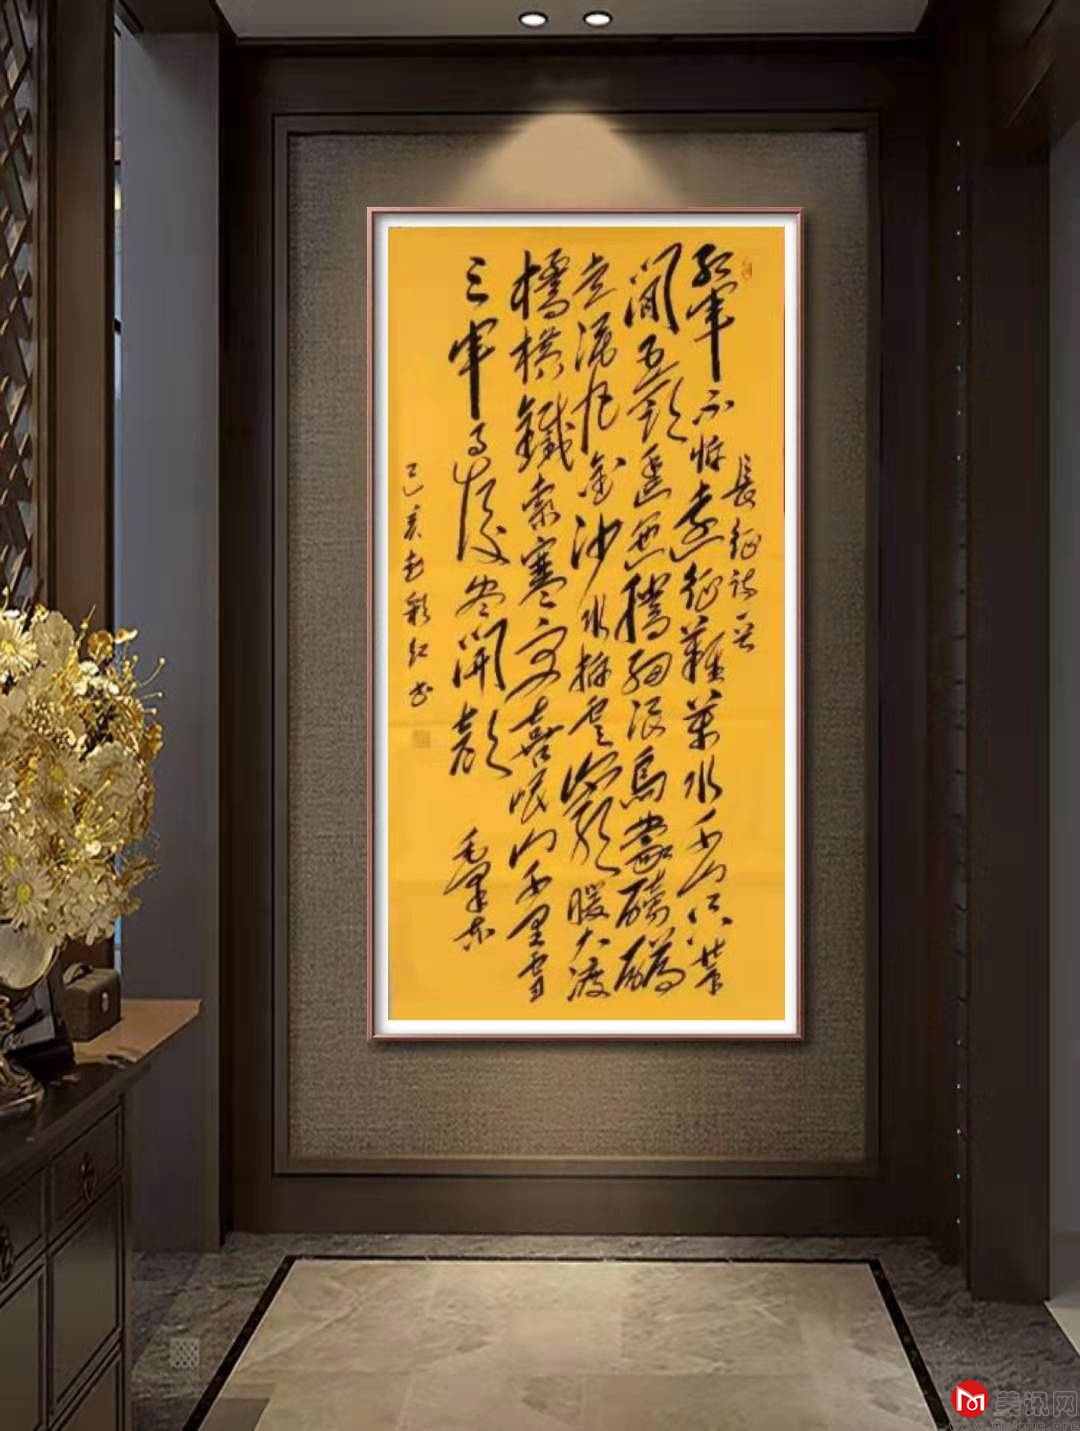 長征詩一首
红軍不怕遠征難萬水千山只等
閒五嶺逶迤騰細浪烏蒙磅礴
走泥丸金沙水拍雲崖暖大渡
橋橫鐵索寒更喜岷山千里雪
三軍過後盡開顏 毛澤東
己亥 彩红书
美讯网
www.meixun.org